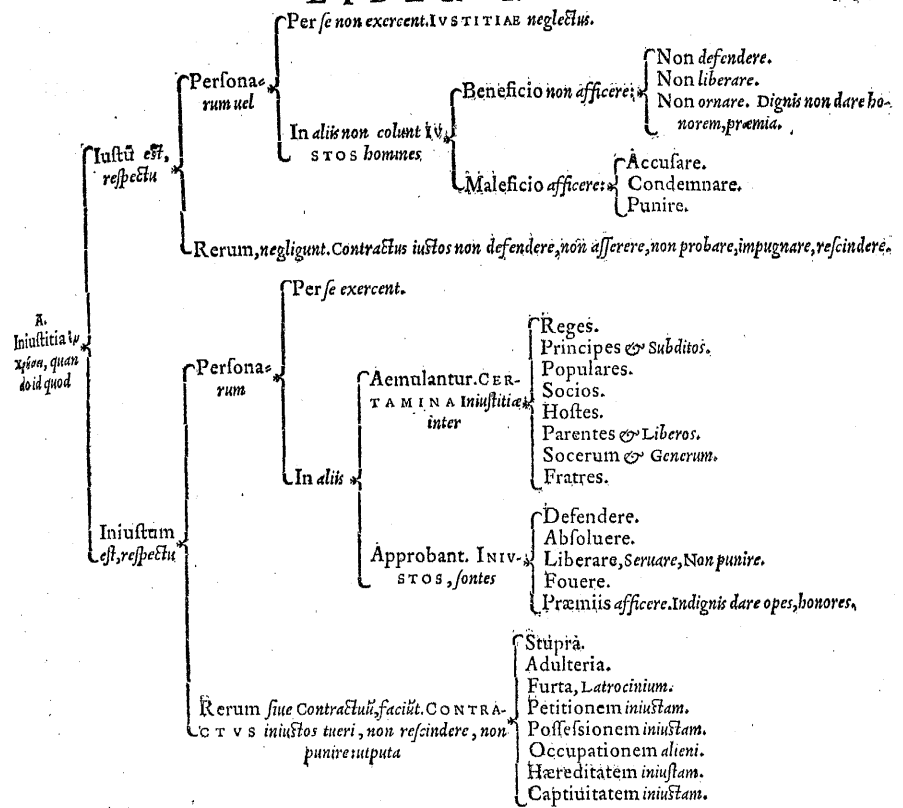 Per ſe non exercent. IVSTITIAE neglectus.
Perſona=
rum uel
In aliis non colunt IV
STOS homines
Beneficio non afficere:
Non defendere.
Non liberare.
Non ornare. Dignis non dare ho-
norem, præmia.
Maleficio afficere:
Accuſare.
Condemnare.
Punire.
Iuſtū eſt,
reſpectu
Rerum, negligunt. Contractus iuſtos non defendere, non aſſerere, non probare, impugnare, reſcindere.
A.
Iniuſtitia ἐν
χρήσει, quan
do id quod
Per ſe exercent.
Perſona=
rum
In aliis
Aemulantur. CER-
TAMINA Iniuſtitiæ
inter
Reges.
Principes & Subditos.
Populares.
Socios.
Hoſtes.
Parentes & Liberos.
Socerum & Generum.
Fratres.
Iniuſtum
eſt, reſpectu
Approbant. INIV-
STOS, ſontes
Defendere.
Abſoluere.
Liberare, Seruare, Non punire.
Fouere.
Præmiis afficere. Indignis dare opes, honores,
Rerum ſiue Contractuū, faciūt. CONTRA-
CTVS iniuſtos tueri, non reſcindere, non
punire: utputa
Stupra.
Adulteria.
Furta, Latrocinium.
Petitionem iniuſtam.
Poſſeſsionem iniuſtam.
Occupationem alieni.
Hæreditatem iniuſtam.
Captiuitatem iniuſtam.